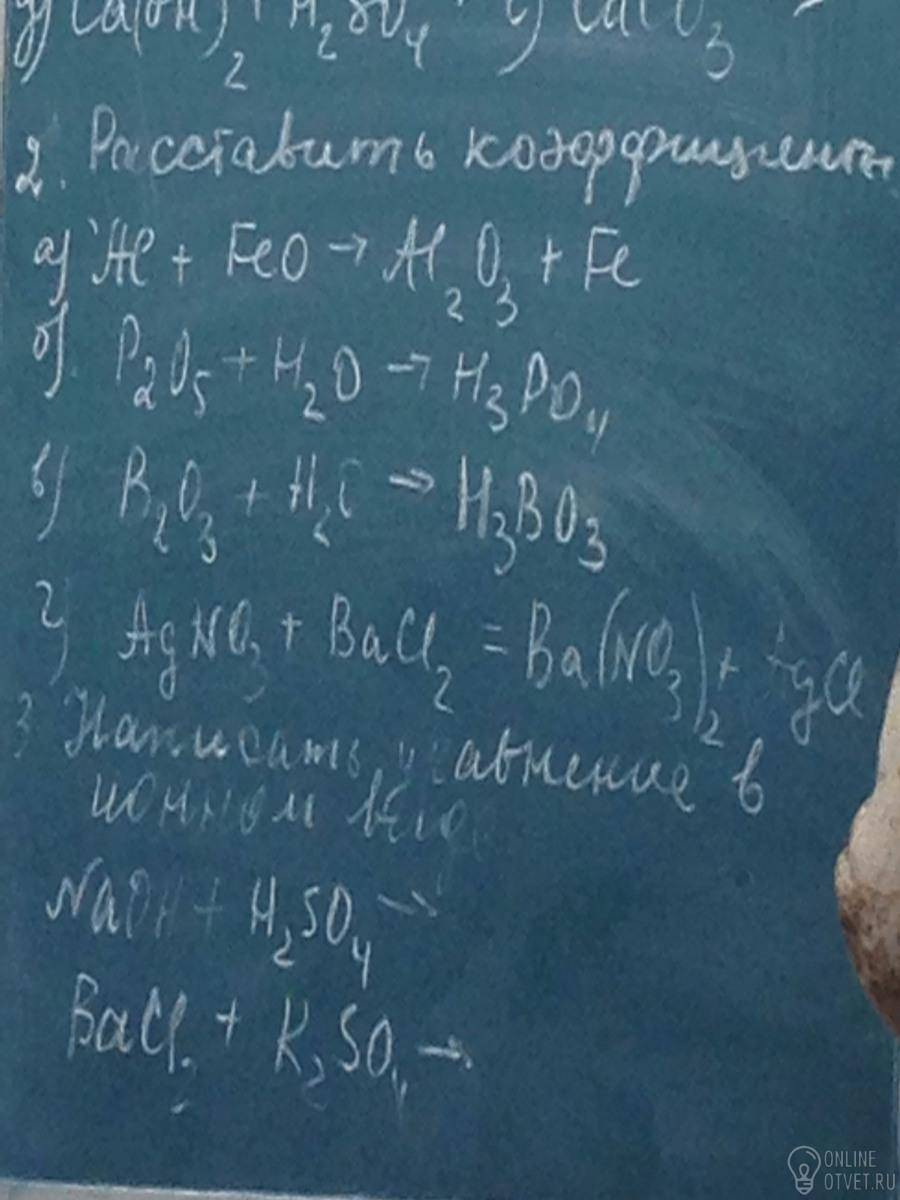 д) Ca(OH)₂ + H₂SO₄ е) CaCO₃
2. Расставить коэффициенты
а) Al + FeO → Al₂O₃ + Fe
б) P₂O₅ + H₂O → H₃PO₄
в) B₂O₃ + H₂O → H₃BO₃
г) AgNO₃ + BaCl₂ = Ba(NO₃)₂ + AgCl
3 Написать уравнение в
ионном виде
NaOH + H₂SO₄ →
BaCl₂ + K₂SO₄ →
ONLINE
OTVET.RU